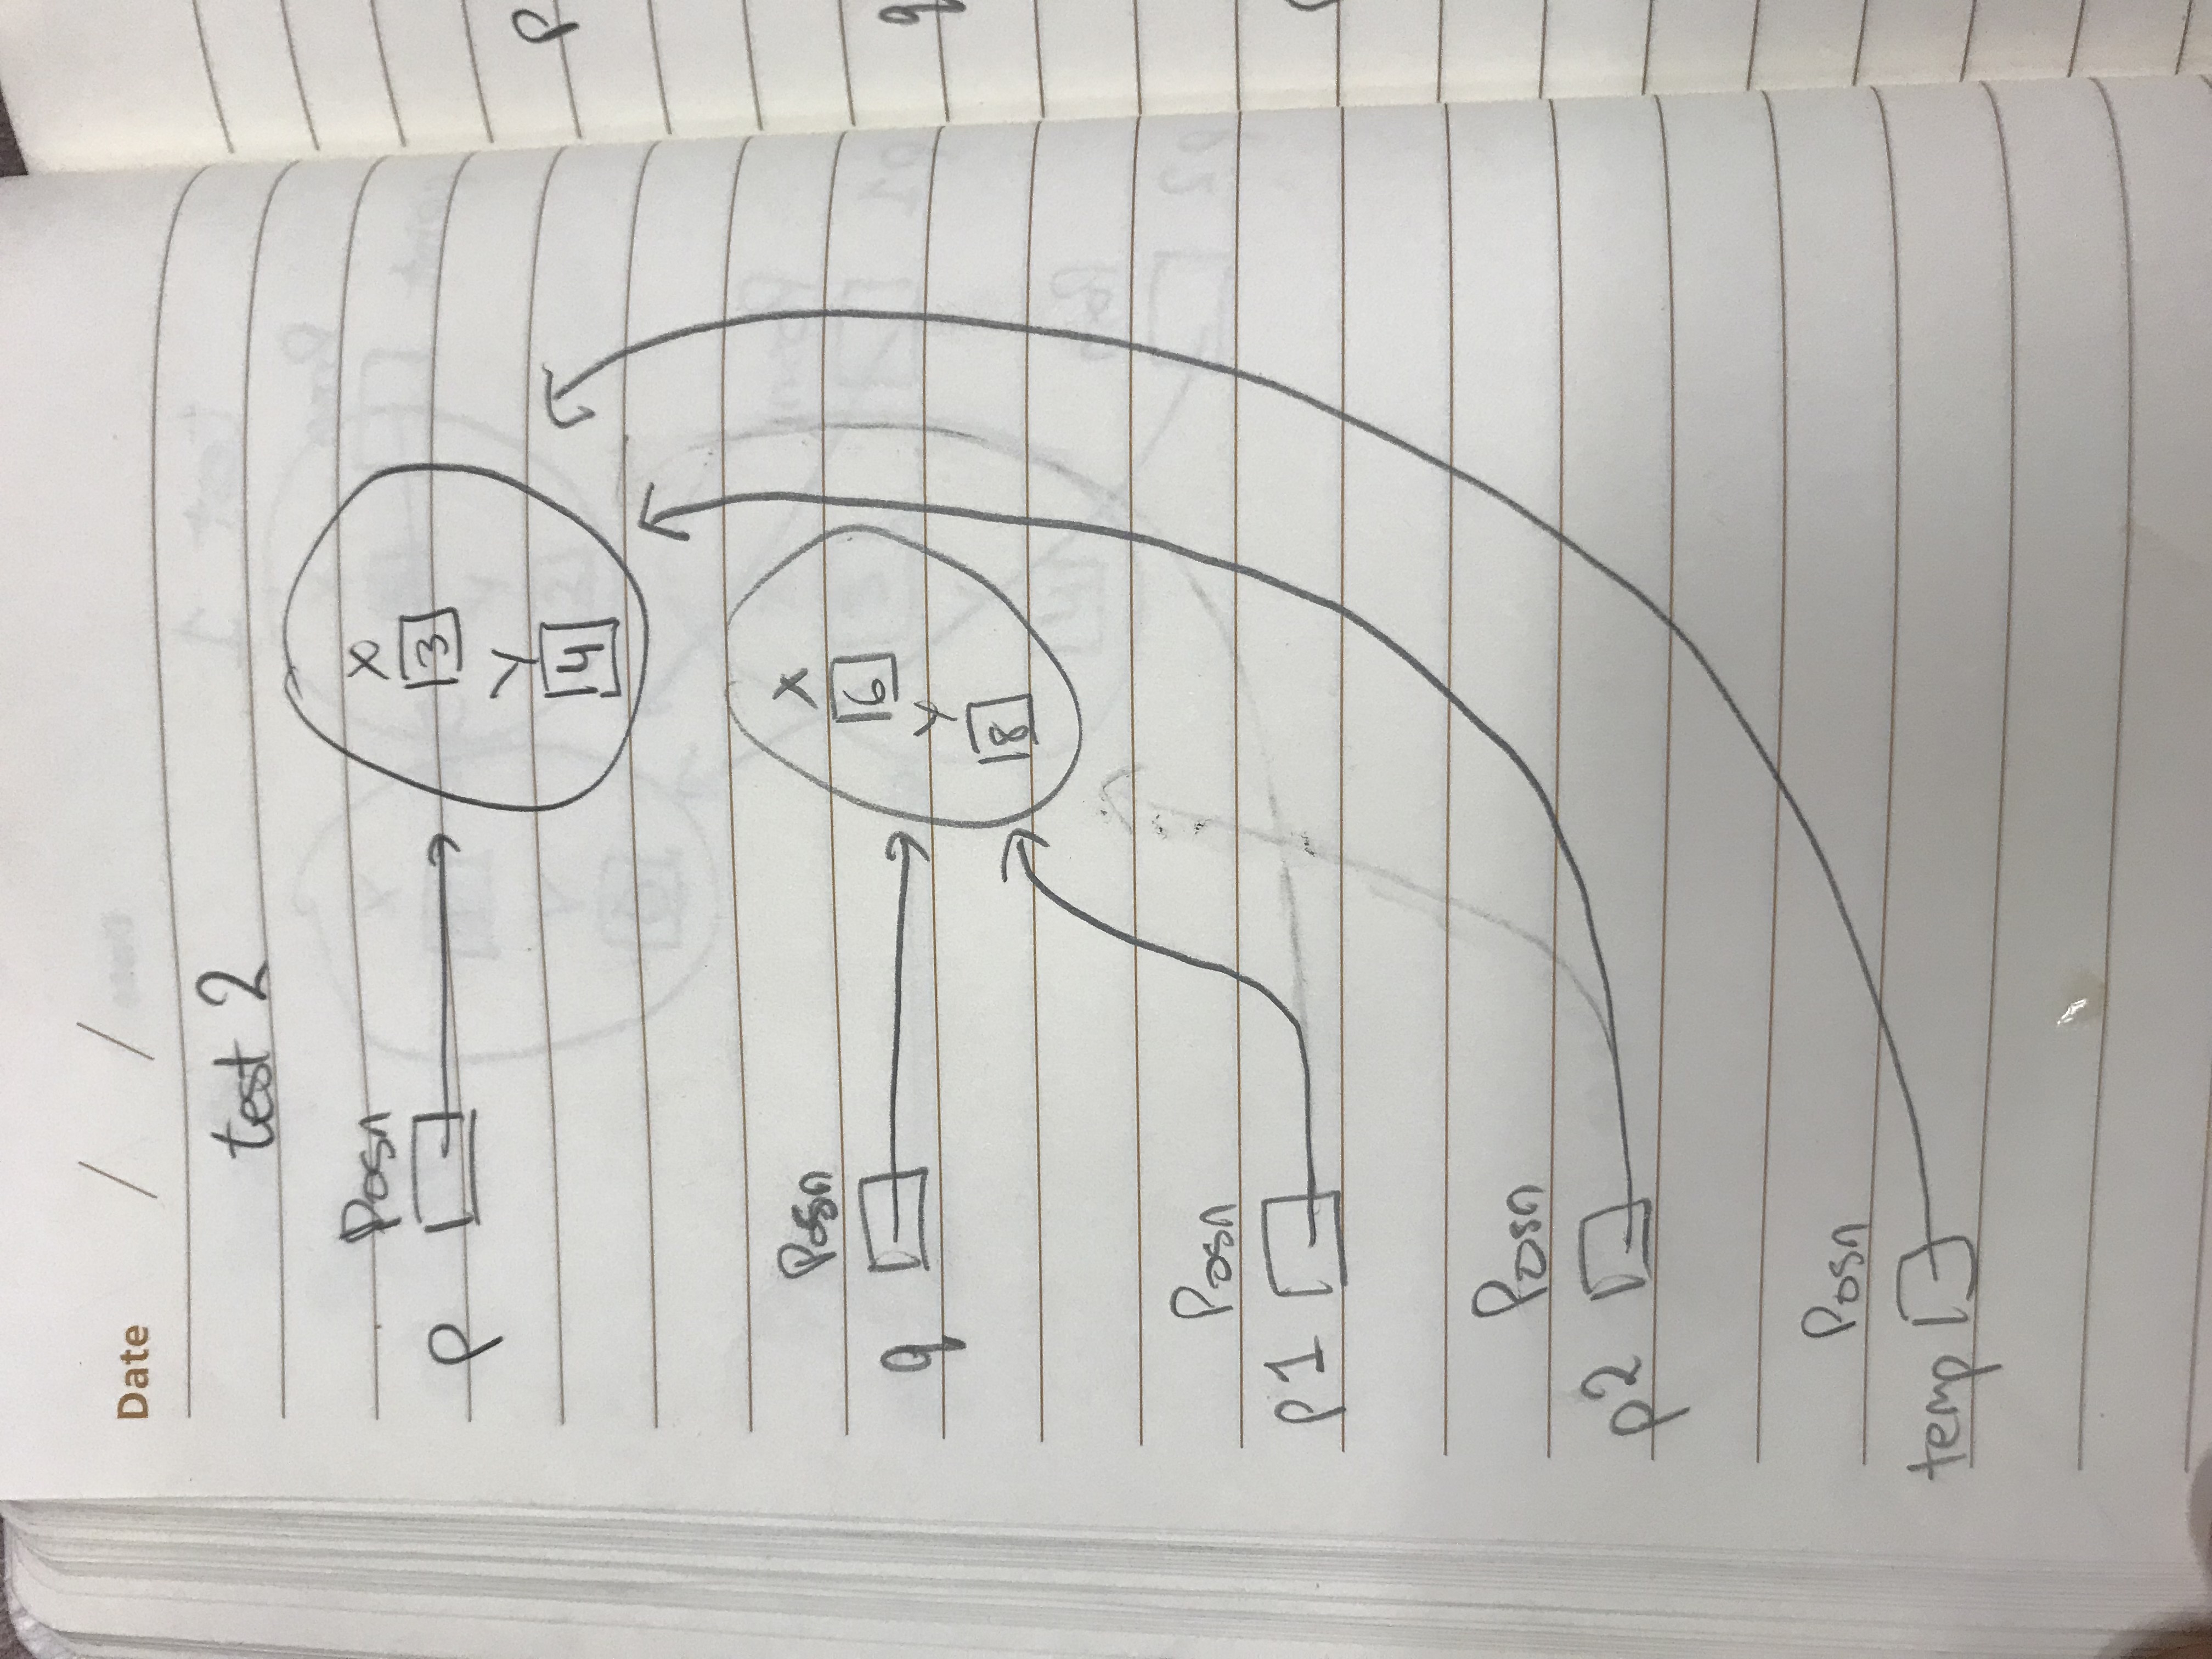 Date / /
test 2
Posn
p
X
3
Y
4
Posn
q
X
6
Y
8
Posn
p1
Posn
p2
Posn
temp
p
q